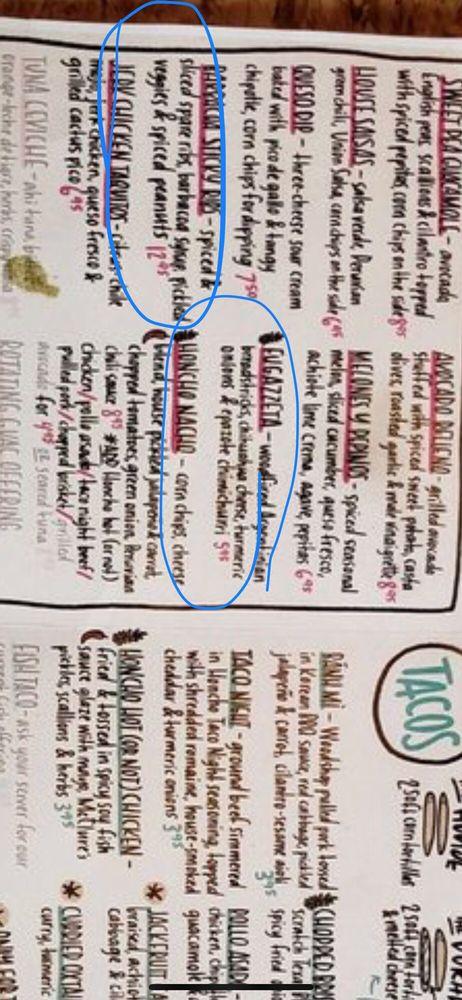 SWEET PEA GUACAMOLE - avocado,
English peas, scallions & cilantro topped
with spiced pepitas, corn chips on the side 8⁹⁵
HOUSE SALSAS - salsa verde, Peruvian
green chili, Union Salsa, corn chips on the side 6⁹⁵
QUESO DIP - three-cheese sour cream
baked with pico de gallo & tangy
chipotle, corn chips for dipping 7⁵⁰
STICKY RIBS - spiced &
sliced spare ribs, barbacoa syrup, pickled
veggies & spiced peanuts 12⁹⁵
CHICKEN TAQUITOS - citrus chile
mayo, jerk chicken, queso fresco &
grilled cactus pico 6⁹⁵
TUNA CEVICHE - ahi tuna
AVOCADO RELLENO - grilled avocado
stuffed with spiced sweet potato,
olives, roasted garlic & vinaigrette 8⁹⁵
MELONES Y PEPINOS - spiced seasonal
melon, sliced cucumber, queso fresco,
achiote lime crema, agave, pepitas 6⁹⁵
FUGAZZETA - woodfired Argentinian
breadsticks, chihuahua cheese, turmeric
onions & epazote chimichurri 5⁹⁵
HONCHO NACHO - corn chips, cheese
blend, house pickled jalapeño & carrot,
chopped tomatoes, green onion, Peruvian
chili sauce 8⁹⁵ *ADD Honcho hot (or not)
chicken/pollo asado/taco night beef/
pulled pork/chopped brisket/grilled
avocado for 4⁹⁵ or seared tuna
ROTATING GUAC OFFERING
TACOS
2 soft corn tortillas
2 soft corn
& melted cheese
BÁNH MÌ - Woodshop pulled pork tossed
in Korean BBQ sauce, red cabbage, pickled
jalapeño & carrot, cilantro-sesame aioli
3⁹⁵
TACO NIGHT - ground beef simmered
in Honcho Taco Night seasoning, topped
with shredded romaine, house-smoked
cheddar & turmeric onions 3⁹⁵
HONCHO HOT (OR NOT) CHICKEN -
fried & tossed in spicy soy fish
sauce glaze with mayo, McClure's
pickles, scallions & herbs 3⁹⁵
FISH TACO - ask your server for our
CHOPPED
scratch Texas
spicy fried
POLLO ASADO
chicken,
guacamole
JACKFRUIT
braised,
cabbage &
curry, turmeric